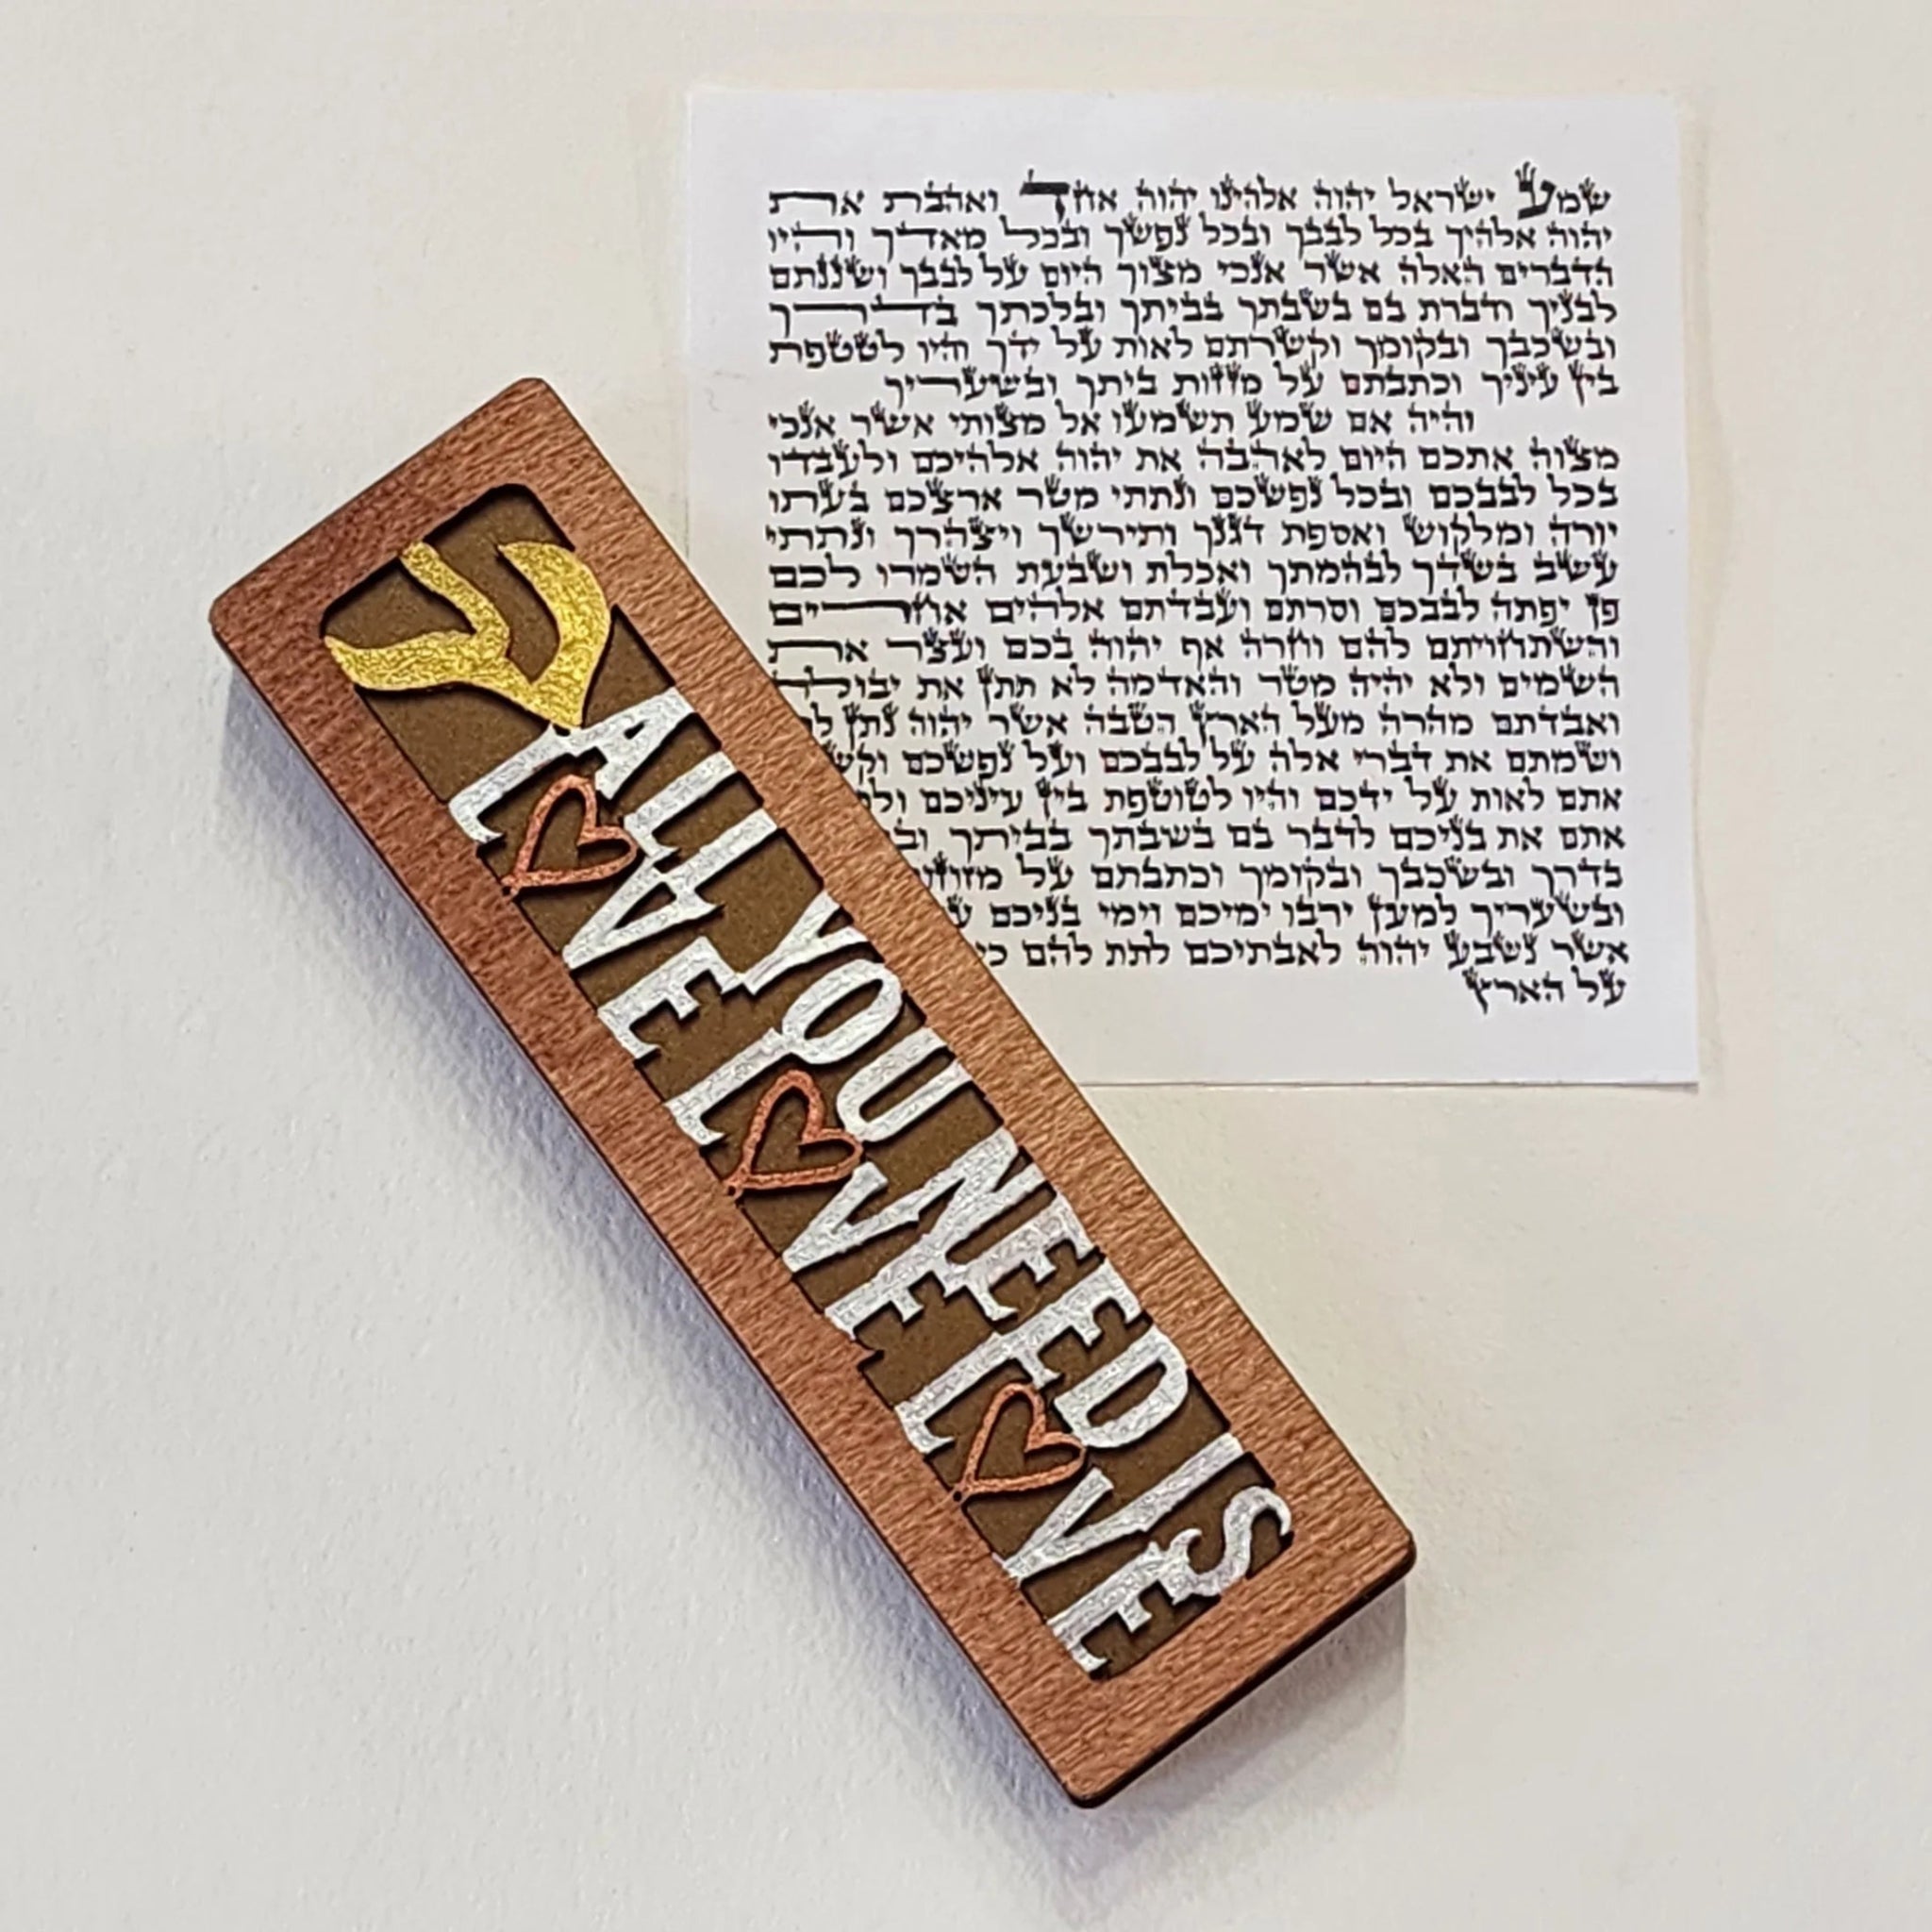 שמע ישראל יהוה אלהינו יהוה אחד ואהבת את
יהוה אלהיך בכל לבבך ובכל נפשך ובכל מאדך והיו
הדברים האלה אשר אנכי מצוך היום על לבבך ושננתם
לבניך ודברת בם בשבתך בביתך ובלכתך בדרך
ובשכבך ובקומך וקשרתם לאות על ידך והיו לטטפת
בין עיניך וכתבתם על מזזות ביתך ובשעריך
והיה אם שמע תשמעו אל מצותי אשר אנכי
מצוה אתכם היום לאהבה את יהוה אלהיכם ולעבדו
בכל לבבכם ובכל נפשכם ונתתי מטר ארצכם בעתו
יורה ומלקוש ואספת דגנך ותירשך ויצהרך ונתתי
עשב בשדך לבהמתך ואכלת ושבעת השמרו לכם
פן יפתה לבבכם וסרתם ועבדתם אלהים אחרים
והשתחויתם להם וחרה אף יהוה בכם ועצר את
השמים ולא יהיה מטר והאדמה לא תתן את יבולה
ואבדתם מהרה מעל הארץ הטבה אשר יהוה נתן
ושמתם את דברי אלה על לבבכם ועל נפשכם
אתם לאות על ידכם והיו לטוטפת בין עיניכם
אתם את בניכם לדבר בם בשבתך בביתך
בדרך ובשכבך ובקומך וכתבתם על
ובשעריך למען ירבו ימיכם וימי בניכם
אשר נשבע יהוה לאבתיכם לתת להם
על הארץ
ש
ALL YOU NEED IS
LOVE LOVE LOVE